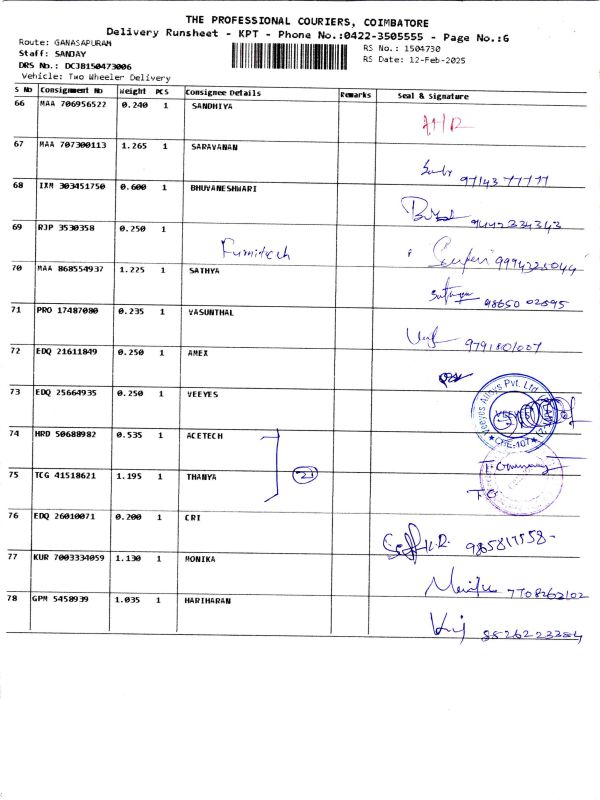 THE PROFESSIONAL COURIERS, COIMBATORE
Delivery Runsheet - KPT - Phone No.:0422-3505555 - Page No.:6
Route: GANASAPURAM
Staff: SANJAY
DRS No.: DCJB150473006
Vehicle: Two Wheeler Delivery
RS No.: 1504730
RS Date: 12-Feb-2025
S No Consignment No Weight PCS Consignee Details Remarks Seal & Signature
66 MAA 706956522 0.240 1 SANDHIYA
67 MAA 707300113 1.265 1 SARAVANAN
9714377777
68 IXM 303451750 0.600 1 BHUVANESHWARI
9442334343
69 RJP 3530358 0.250 1
Furnitech
9994325044
70 MAA 868554937 1.225 1 SATHYA
Sathya 98650 02895
71 PRO 17487080 0.235 1 VASUNTHAL
9791801007
72 EDQ 21611849 0.250 1 AMEX
73 EDQ 25664935 0.250 1 VEEYES
Veeyes Alloys Pvt. Ltd
74 HRD 50688982 0.535 1 ACETECH
75 TCG 41518621 1.195 1 THANYA
21
76 EDQ 26010071 0.200 1 CRI
9865817558
77 KUR 7003334059 1.130 1 MONIKA
7708262102
78 GPM 5458939 1.035 1 HARIHARAN
8826223384